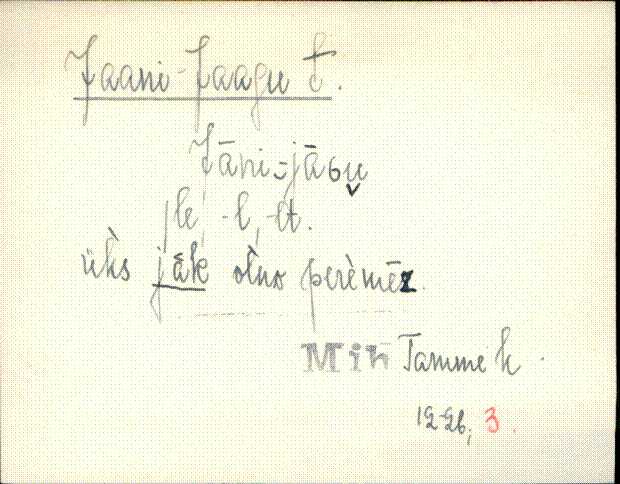 Jaani-Jaagu t.
Jāni-jāɢu̬
jle -l, -lt.
üks jāk olno perèmēz.
Mih Tamme k.
12-26, 3.